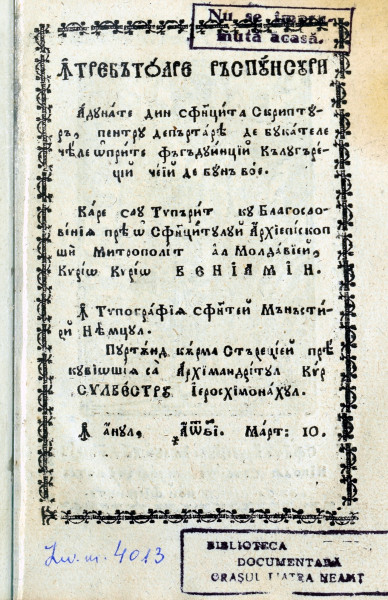 Nu se împru-
mută acasă.
Ꙟтребътѻаре ръспꙋнсꙋри
Адꙋнате дин сфꙟнцита Скриптꙋ-
ръ, пентрꙋ депъртарѣ де бꙋкателе
чѣле ѡприте фъгъдꙋинций Кълꙋгъре-
щи чеѝ де бꙋн вое.
Каре саꙋ Типърит кꙋ Благосло-
вения прѣ ѡ Сфинцитꙋлꙋй Архїепїскоп
ши Митрополит ал Молдавїей,
Кѵрїѡ Кѵрїѡ ВЕНІАМІН.
Ꙟ Типографїѧ сфинтей Мънъсти-
рй Нѣмцꙋл.
Пꙋртꙟнд кърма Стърецїей прѣ
кꙋвїѡшїѧ са Архїмандритꙋл Кѵр
СИЛВЕСТРꙋ Іеросхїмонахꙋл.
Ꙟ анꙋл, Март: 10.
Inv. nr. 4013
BIBLIOTECA
DOCUMENTARĂ
ORAȘUL PIATRA NEAMȚ